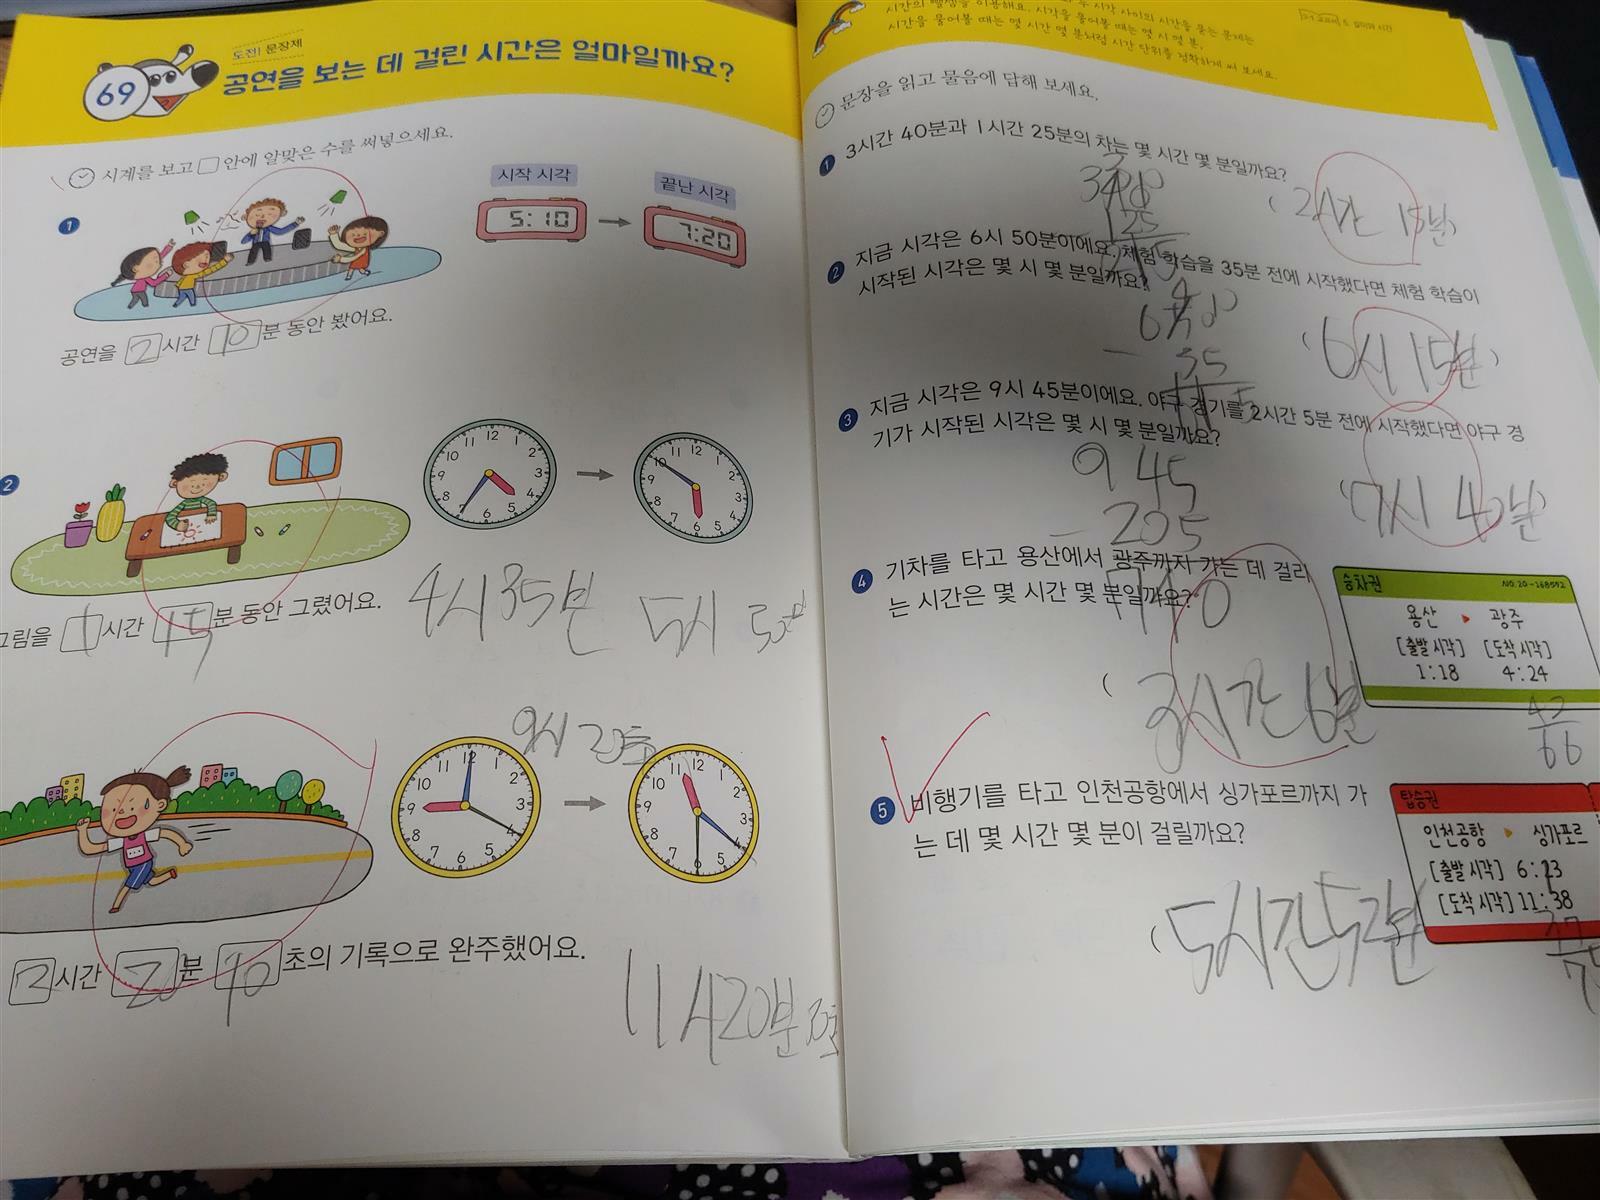 69
도전! 문장제
공연을 보는 데 걸린 시간은 얼마일까요?
시계를 보고 □ 안에 알맞은 수를 써넣으세요.
1
시작 시각
5:10
끝난 시각
7:20
공연을 2 시간 10 분 동안 봤어요.
2
그림을 1 시간 15 분 동안 그렸어요.
4시 35분
5시 50분
9시 20초
2 시간 20 분 10 초의 기록으로 완주했어요.
11시 20분 30초
시간의 뺄셈을 이용해요. 시각을 물어볼 때는 몇 시 몇 분,
시간을 물어볼 때는 몇 시간 몇 분처럼 시간 단위를 정확하게 써 보세요.
문장을 읽고 물음에 답해 보세요.
1 3시간 40분과 1시간 25분의 차는 몇 시간 몇 분일까요?
(2시간 15분)
2 지금 시각은 6시 50분이에요. 체험 학습을 35분 전에 시작했다면 체험 학습이
시작된 시각은 몇 시 몇 분일까요?
35
(6시 15분)
3 지금 시각은 9시 45분이에요. 야구 경기를 2시간 5분 전에 시작했다면 야구 경
기가 시작된 시각은 몇 시 몇 분일까요?
9 45
- 205
(7시 40분)
4 기차를 타고 용산에서 광주까지 가는 데 걸리
는 시간은 몇 시간 몇 분일까요?
(3시간 6분
승차권
NO.20-168592
용산 ▶ 광주
[출발 시각] [도착 시각]
1:18 4:24
42
66
5 비행기를 타고 인천공항에서 싱가포르까지 가
는 데 몇 시간 몇 분이 걸릴까요?
(5시간 52분
탑승권
인천공항 ▶ 싱가포르
[출발 시각] 6:23
[도착 시각] 11:38